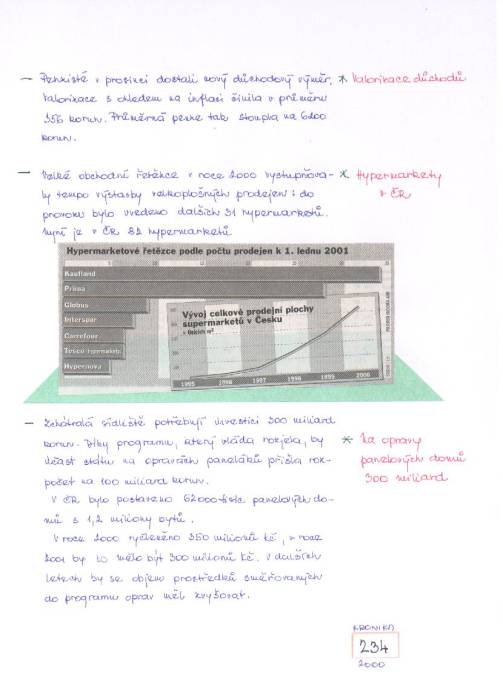 — Penzisté v prosinci dostali nový důchodový výměr. * Valorizace důchodů
Valorizace s ohledem na inflaci činila v průměru
356 korun. Průměrná penze tak stoupla na 6200
korun.
— Velké obchodní řetězce v roce 2000 vystupňova- * Hypermarkety
ly tempo výstavby velkoplošných prodejen: do v ČR
provozu bylo uvedeno dalších 31 hypermarketů.
Nyní je v ČR 82 hypermarketů
Hypermarketové řetězce podle počtu prodejen k 1. lednu 2001
Kaufland
Prima
Globus
Interspar
Carrefour
Tesco hypermarkets
Hypernova
Vývoj celkové prodejní plochy
supermarketů v Česku
1995 1996 1997 1998 1999 2000
— Zchátralá sídliště potřebují investici 300 miliard
korun. Díky programu, který vláda rozjela, by * Na opravy
účast státu na opravách paneláků přišla roz- panelových domů
počet na 100 miliard korun. 300 miliard
V ČR bylo postaveno 62000 panelových do-
mů s 1,2 miliony bytů.
V roce 2000 vyčleněno 350 milionů kč, v roce
2001 by to mělo být 300 milionů kč. V dalších
letech by se objem prostředků směřovaných
do programu oprav měl zvyšovat.
KRONIKA
234
2000